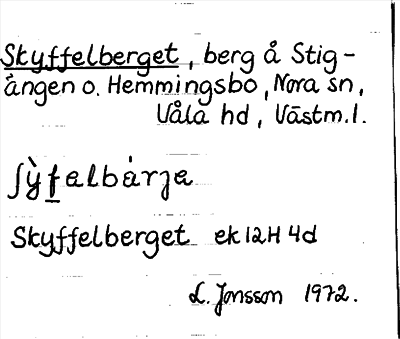 Skyffelberget, berg å Stig-
ängen o. Hemmingsbo, Nora sn,
Våla hd, Västm.l.
ʃỳfalbàrja
Skyffelberget ek 12H 4d
L. Jonsson 1972.